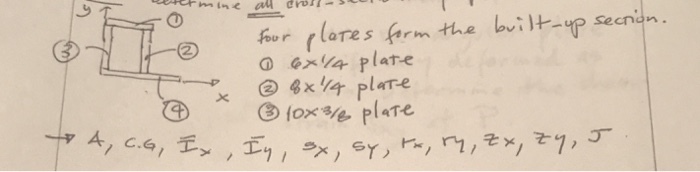 determine all cross-se
y ①
Four plates form the built-up section.
③ ② ① 6x1/4 plate
② 8x1/4 plate
x
④ ③ 10x3/8 plate
→ A, C.G, I̅x, I̅y, Sx, Sy, rx, ry, Zx, Zy, J